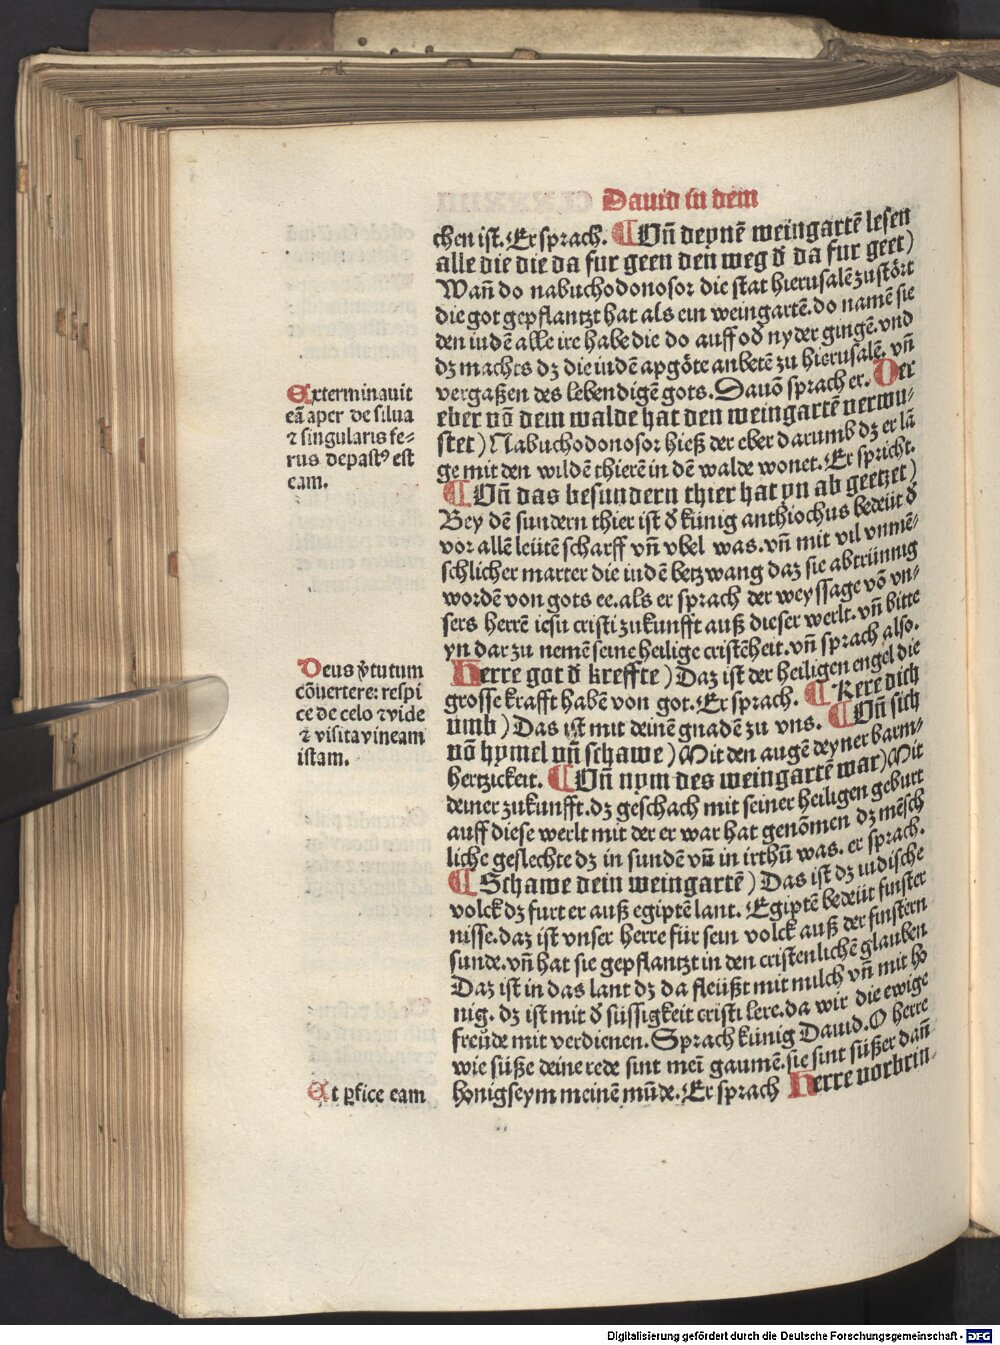 Dauid in dem
chen ist. Er sprach. ¶ Vn̄ deynē weingartē lesen
alle die die da fur geen den weg d̕ da fur geet)
Wan̄ do nabuchodonosor die stat hierusalē zustört
die got gepflantzt hat als ein weingartē. do namē sie
den iudē alle ire habe die do auff od̕ nyder gingē. vnd
dz machts dz die iudē apgöte anbetē zu hierusalē. vn̄
vergaßen des lebendigē gots. Dauō sprach er. Der
eber vō dem walde hat den weingartē verwu-
stet) Nabuchodonosor hieß der eber darumb dz er lā
ge mit den wildē thierē in dē walde wonet. Er spricht.
¶ Vn̄ das besundern thier hat yn ab geetzet)
Bey dē sundern thier ist d̕ künig anthiochus bedeüt d̕
vor allē leütē scharff vn̄ vbel was. vn̄ mit vil vnmē-
schlicher marter die iudē betzwang daz sie abtrünnig
wordē von gots ee. als er sprach der weyssage vō vn-
sers herrē iesu cristi zukunfft auß dieser werlt. vn̄ bitte
yn dar zu nemē seine heilige cristēheit. vn̄ sprach also.
Herre got d̕ kreffte) Daz ist der heiligen engel die
grosse krafft habē von got. Er sprach. ¶ Kere dich
vmb) Das ist mit deinē gnadē zu vns. ¶ Vn̄ sich
vō hymel vn̄ schawe) Mit den augē deyner barm-
hertzickeit. ¶ Vn̄ nym des weingartē war) Mit
deiner zukunfft. dz geschach mit seiner heiligen geburt
auff diese werlt mit der er war hat genōmen dz mēsch
liche geslechte dz in sundē vn̄ in irthū was. er sprach.
¶ Schawe dein weingartē) Das ist dz iudische
volck dz furt er auß egiptē lant. Egiptē bedeüt finster
nisse. daz ist vnser herre für sein volck auß der finstern
sunde. vn̄ hat sie gepflantzt in den cristenlichē glauben
Daz ist in das lant dz da fleüßt mit milch vn̄ mit ho
nig. dz ist mit d̕ süssigkeit cristi lere. da wir die ewige
freüde mit verdienen. Sprach künig Dauid. O herre
wie süße deine rede sint mei gaumē. sie sint süßer dan̄
honigseym meinē mūde. Er sprach Herre vorbrin-
Exterminauit
eā aper de silua
⁊ singularis fe-
rus depastꝰ est
eam.
Deus v̕tutum
cōuertere: respi
ce de celo ⁊ vide
⁊ visita vineam
istam.
Et ꝑfice eam
Digitalisierung gefördert durch die Deutsche Forschungsgemeinschaft - DFG